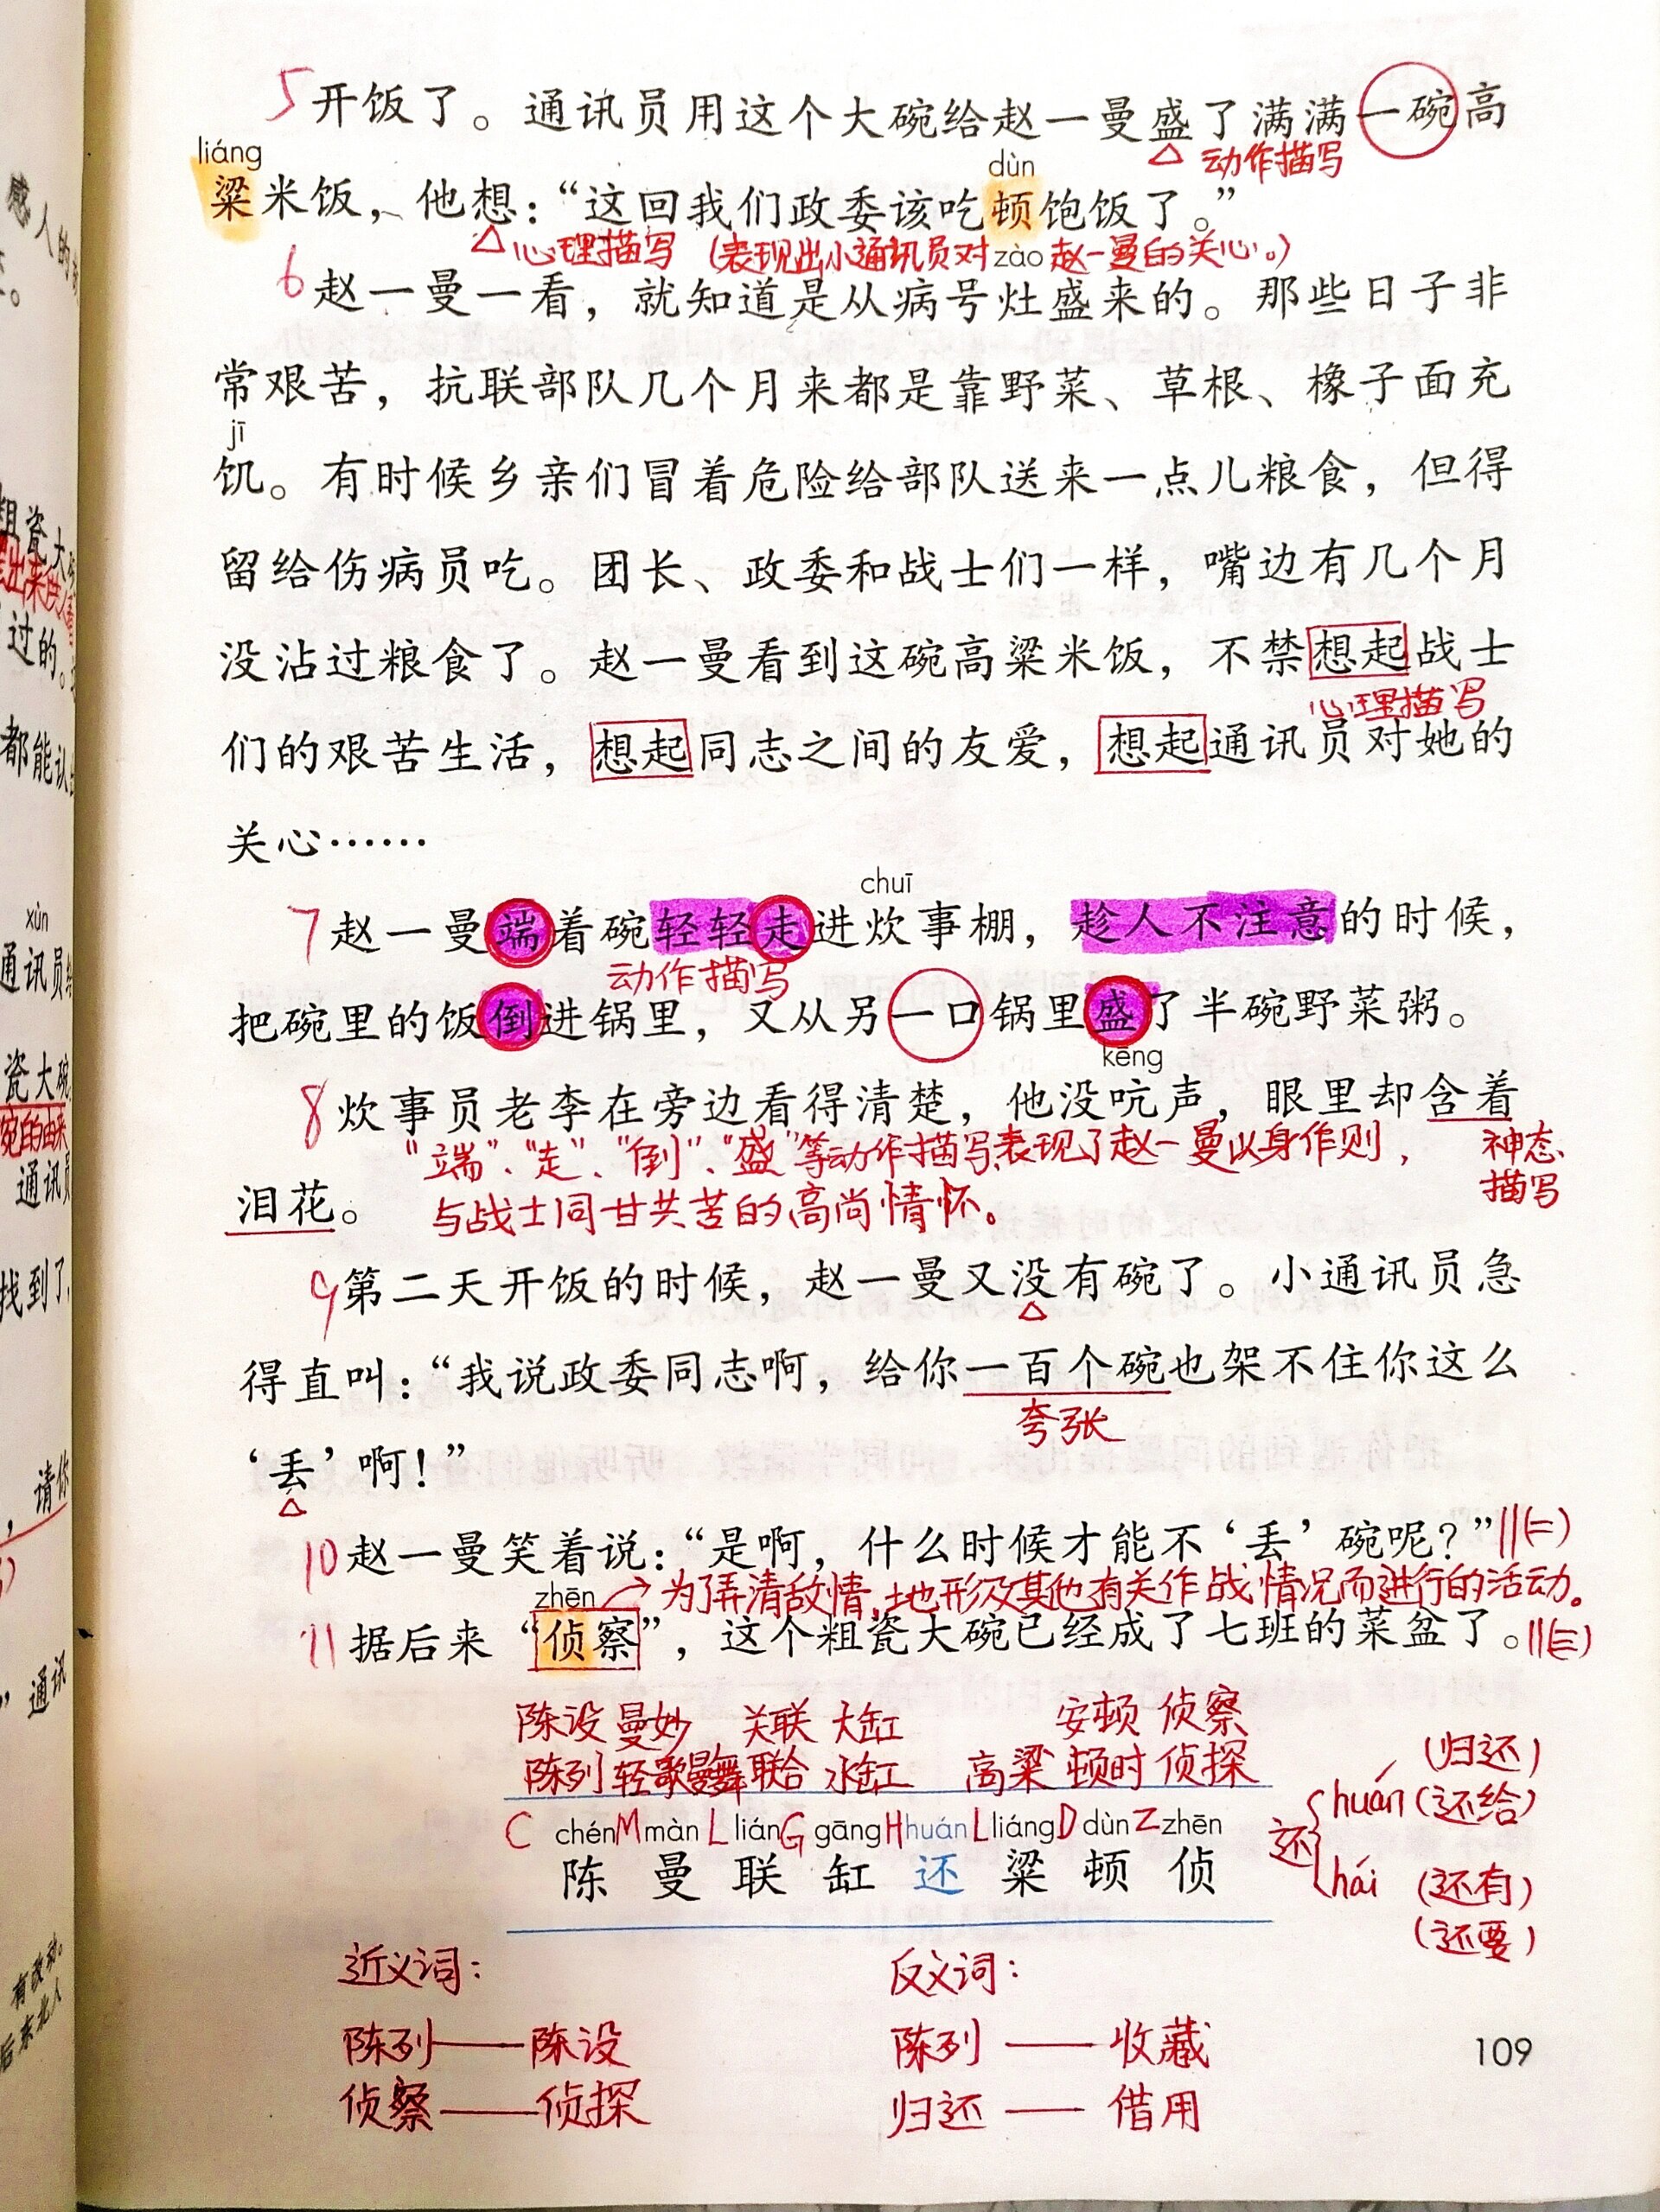 5 开饭了。通讯员用这个大碗给赵一曼盛了满满一碗高
动作描写
liáng dùn
粱米饭，他想：“这回我们政委该吃顿饱饭了。”
心理描写（表现出小通讯员对赵一曼的关心。）
zào
6 赵一曼一看，就知道是从病号灶盛来的。那些日子非
常艰苦，抗联部队几个月来都是靠野菜、草根、橡子面充
jī
饥。有时候乡亲们冒着危险给部队送来一点儿粮食，但得
留给伤病员吃。团长、政委和战士们一样，嘴边有几个月
没沾过粮食了。赵一曼看到这碗高粱米饭，不禁想起战士
心理描写
们的艰苦生活，想起同志之间的友爱，想起通讯员对她的
关心……
chuī
7 赵一曼端着碗轻轻走进炊事棚，趁人不注意的时候，
动作描写
把碗里的饭倒进锅里，又从另一口锅里盛了半碗野菜粥。
kēng
8 炊事员老李在旁边看得清楚，他没吭声，眼里却含着
“端”、“走”、“倒”、“盛”等动作描写表现了赵一曼以身作则，
神态
描写
泪花。
与战士同甘共苦的高尚情怀。
9 第二天开饭的时候，赵一曼又没有碗了。小通讯员急
得直叫：“我说政委同志啊，给你一百个碗也架不住你这么
夸张
‘丢’啊！”
10 赵一曼笑着说：“是啊，什么时候才能不‘丢’碗呢？”||(二)
zhēn
→为了弄清敌情,地形及其他有关作战情况而进行的活动。
11 据后来“侦察”，这个粗瓷大碗已经成了七班的菜盆了。||(三)
陈设 曼妙 关联 大缸 安顿 侦察
陈列 轻歌曼舞 联合 水缸 高粱 顿时 侦探
C chén M màn L lián G gāng H huán L liáng D dùn Z zhēn
陈 曼 联 缸 还 粱 顿 侦
还
huán（归还）
（还给）
hái（还有）
（还要）
近义词： 反义词：
陈列——陈设 陈列——收藏
侦察——侦探 归还——借用
109
感人的
粗瓷大
过的。
都能认
xùn
通讯员
瓷大碗
碗的由来
通讯员
找到了，
请你
通讯
有改动。
后东北人